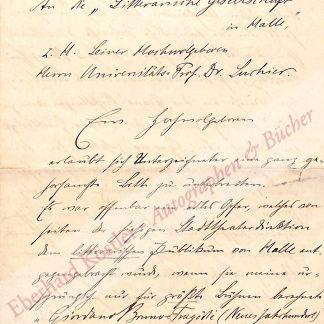 An die „Litterarische Gesellschaft"
in Halle,
z. H. Seiner Hochwolgeboren
Herrn Universitäts-Prof. Dr. Suchier.
Euer Hochwolgeboren
erlaubt sich Unterzeichneter eine ganz ge-
horsamste Bitte zu unterbreiten.
Es war offenbar ein edles Opfer, welches von
seiten der Stadttheaterdirektion
dem litterarischen Publikum von Halle ent-
gegengebracht wurde, wenn sie meine u
sprünglich nur für größte Bühnen berechnete
„Giordano Bruno-Tragödie (Neues Jahrhundert)
Eberhard Köstler Autographen & Bücher